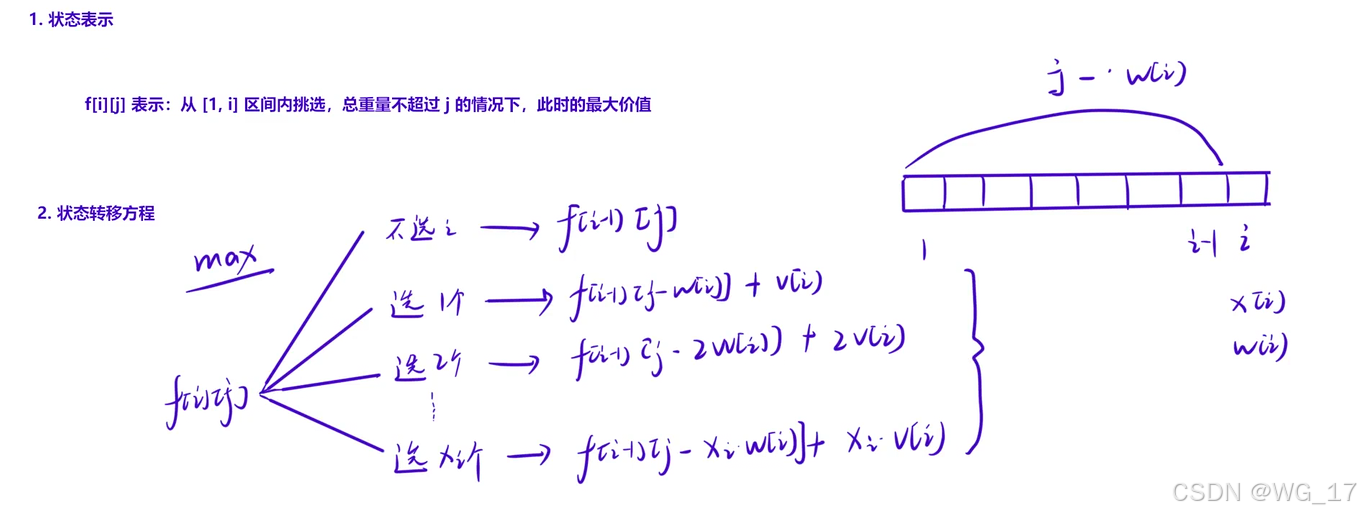 1. 状态表示
f[i][j] 表示：从 [1, i] 区间内挑选，总重量不超过 j 的情况下，此时的最大价值
j - · w[i]
1 i-1 i
x[i]
w[i]
2. 状态转移方程
max
f[i][j]
不选 i → f[i-1][j]
选 1个 → f[i-1][j-w[i]] + v[i]
选 2个 → f[i-1][j - 2w[i]] + 2v[i]
选 xi个 → f[i-1][j - xi·w[i]] + xi·v[i]
CSDN @WG_17